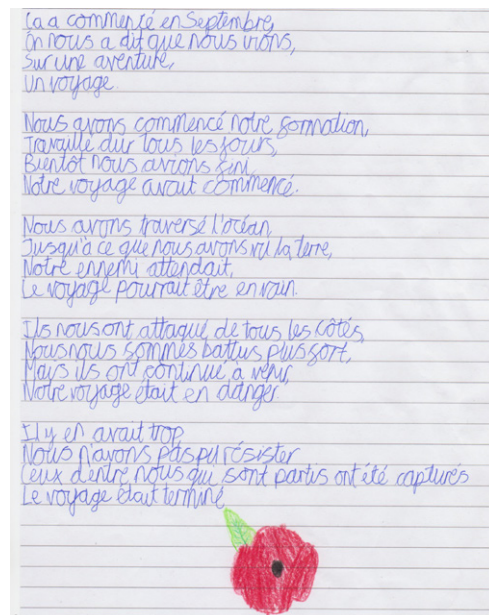 Ça a commencé en Septembre,
On nous a dit que nous irons,
Sur une aventure,
Un voyage.
Nous avons commencé notre formation,
Travaille dur tous les jours,
Bientôt nous avions fini,
Notre voyage avait commencé.
Nous avons traversé l'océan,
Jusqu'à ce que nous avons vu la terre,
Notre ennemi attendait,
Le voyage pourrait être en vain.
Ils nous ont attaqué de tous les côtés,
Nous nous sommes battus plus fort,
Mais ils ont continué à venir,
Notre voyage était en danger.
Il y en avait trop
Nous n'avons pas pu résister
Ceux d'entre nous qui sont partis ont été capturés
Le voyage était terminé